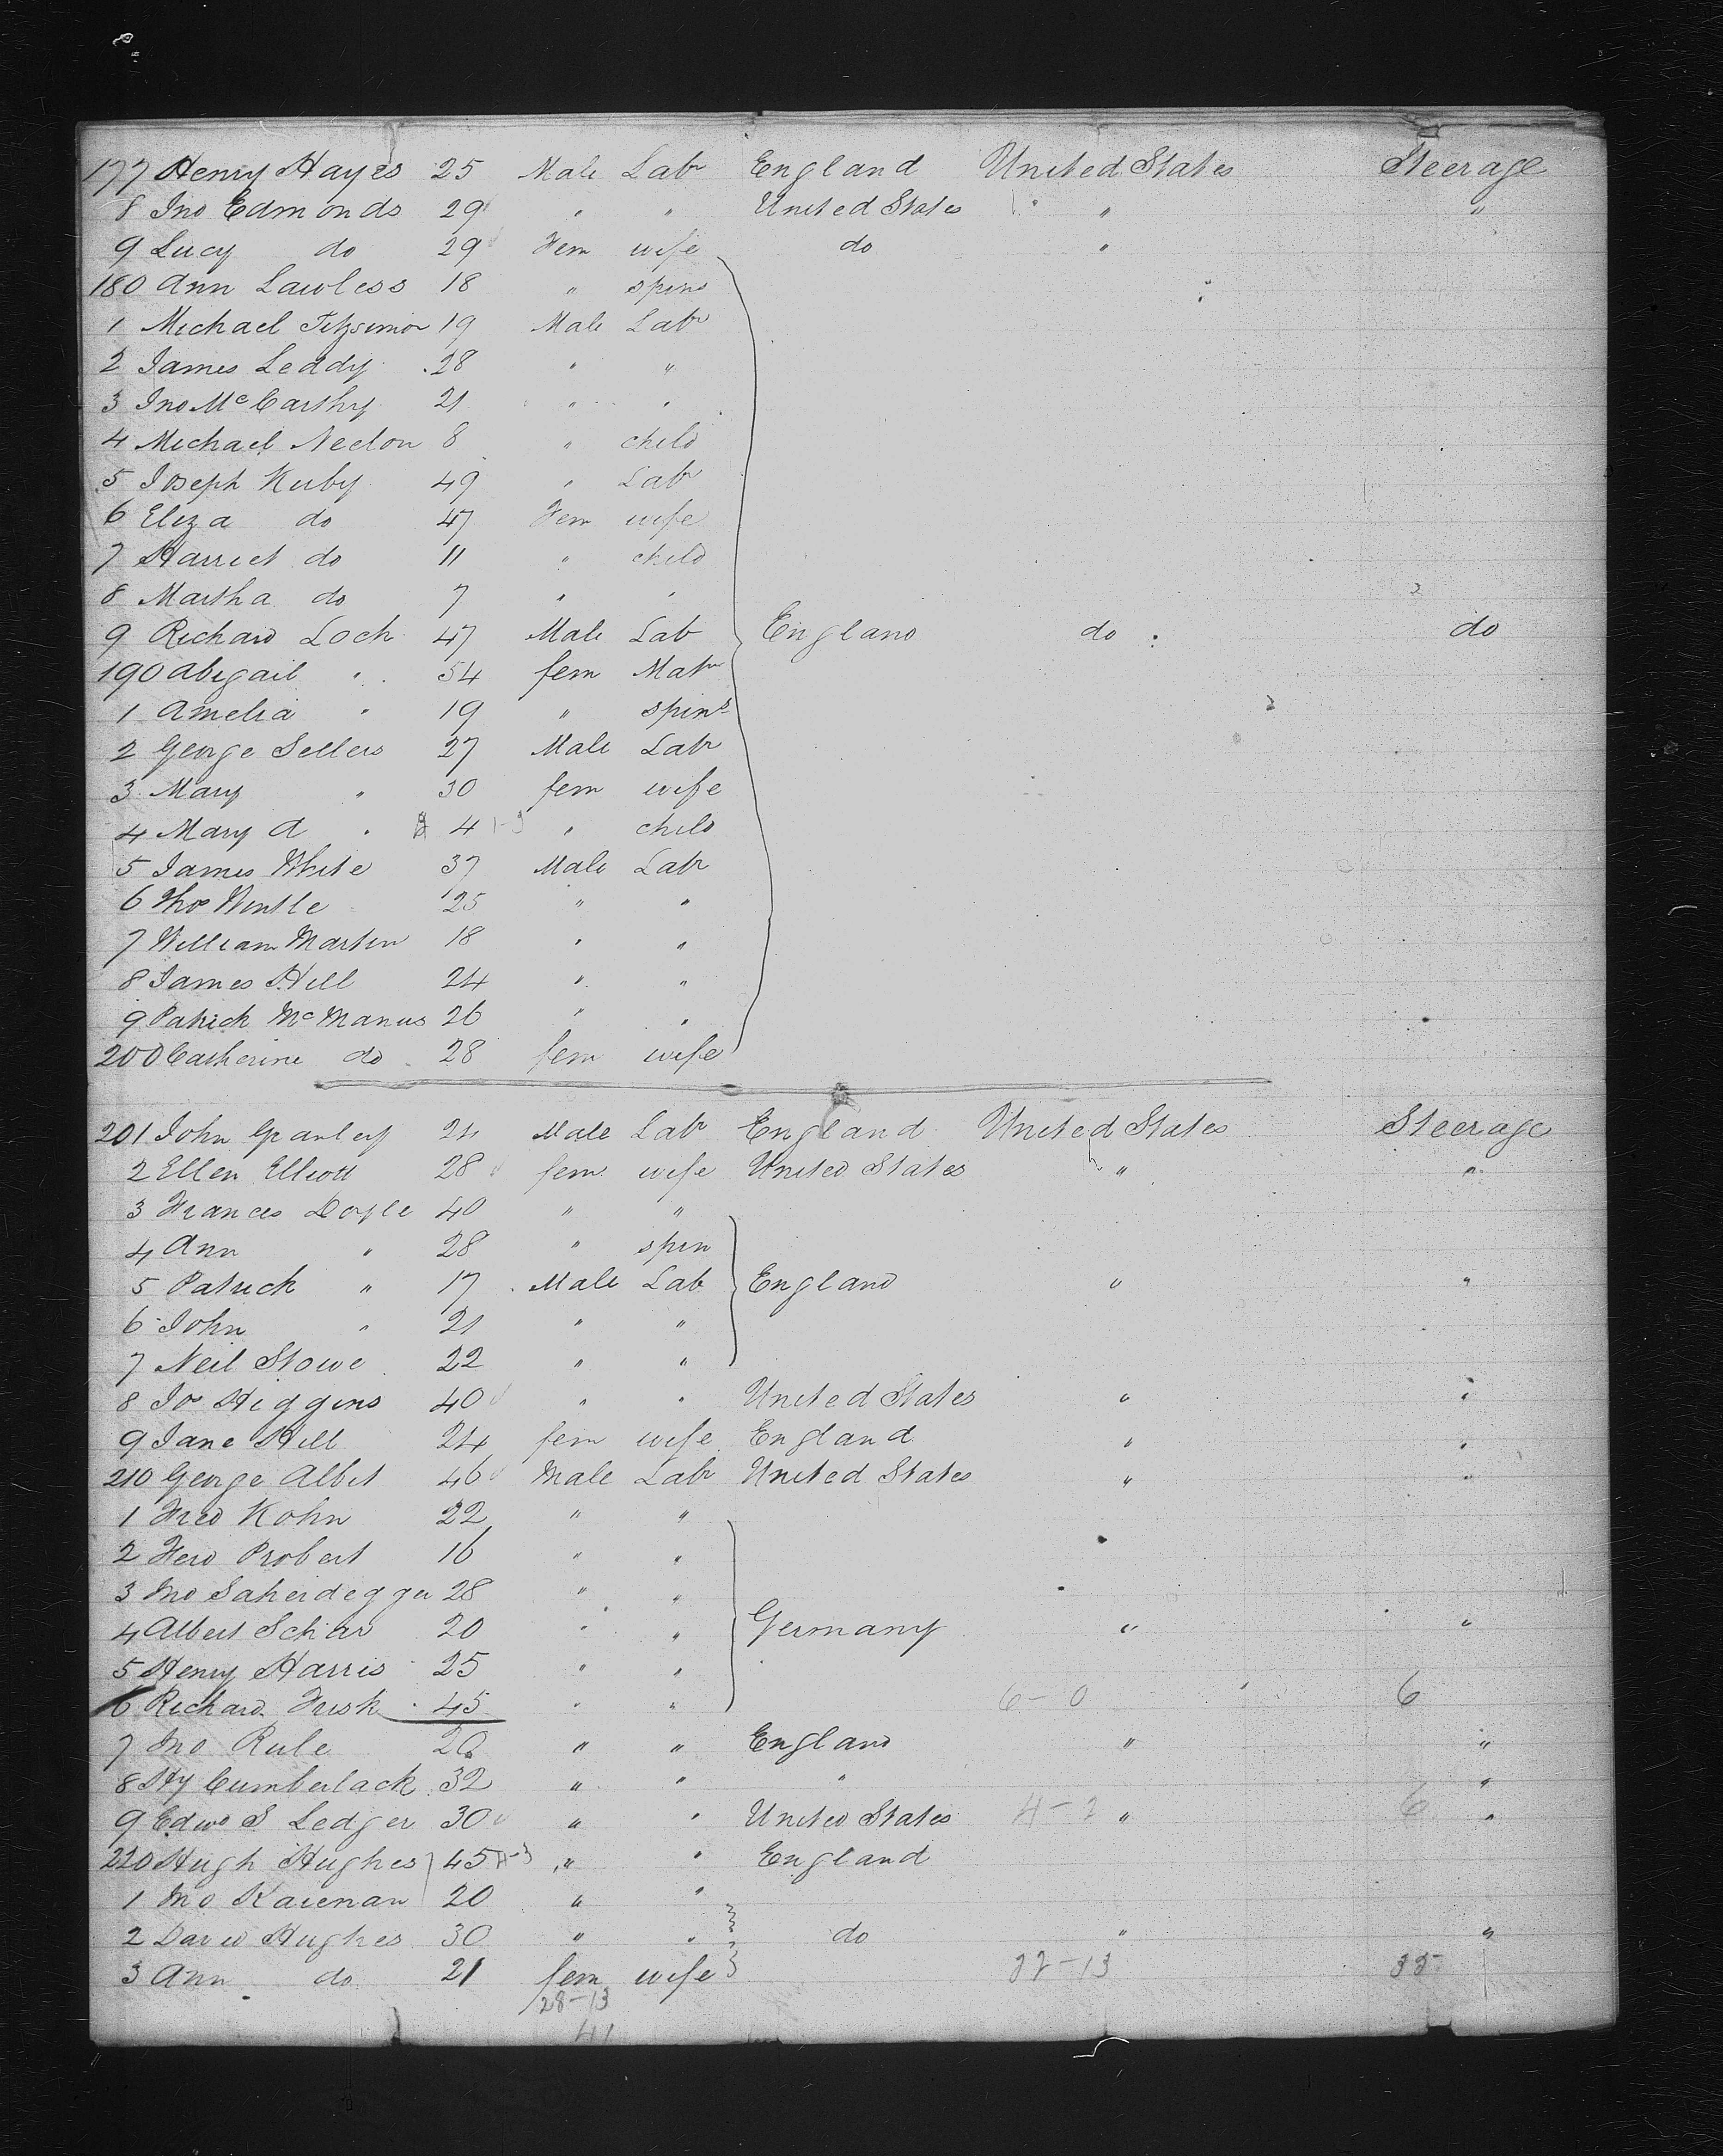 177 Henry Hayes 25 Male Labr England United States Steerage
8 Jno Edmonds 29 " " United States " "
9 Lucy do 29 Fem wife do "
180 Ann Lawless 18 " spins
1 Michael Fitzsimon 19 Male Labr
2 James Leddy 28 " "
3 Jno McCarthy 21 " "
4 Michael Neelon 8 " child
5 Joseph Kirby 49 " Labr
6 Eliza do 47 Fem wife
7 Harriet do 11 " child
8 Martha do 7 " "
9 Richard Loch 47 Male Lab England do do
190 Abigail " 54 fem Matn
1 Amelia " 19 " spins
2 George Sellers 27 Male Labr
3 Mary " 30 fem wife
4 Mary A " 4 " child
5 James White 37 Male Labr
6 Thos Wintle 25 " "
7 William Martin 18 " "
8 James Hill 24 " "
9 Patrick McManus 26 " "
200 Catherine do 28 fem wife
201 John Ganley 24 Male Labr England United States Steerage
2 Ellen Elliott 28 fem wife United States " "
3 Frances Doyle 40 " "
4 Ann " 28 " spin
5 Patrick " 17 Male Lab England " "
6 John " 21 " "
7 Neil Stowe 22 " "
8 Jos Higgins 40 " " United States " "
9 Jane Hill 24 fem wife England " "
210 George Albet 46 Male Labr United States " "
1 Fred Kohn 22 " "
2 Ferd Probert 16 " "
3 Jno Saheidegger 28 " "
4 Albert Schar 20 " " Germany " "
5 Henry Harris 25 " "
6 Richard Frish 45 " " 6-0 6
7 Jno Rule 20 " " England " "
8 Hy Cumberlack 32 " " " "
9 Edwd S Ledger 30 " " United States 4-2 " 6 "
220 Hugh Hughes 45 " " England
1 Jno Kaienan 20 " "
2 David Hughes 30 " " do " "
3 Ann do 21 fem wife 22-13 35
28-13
41